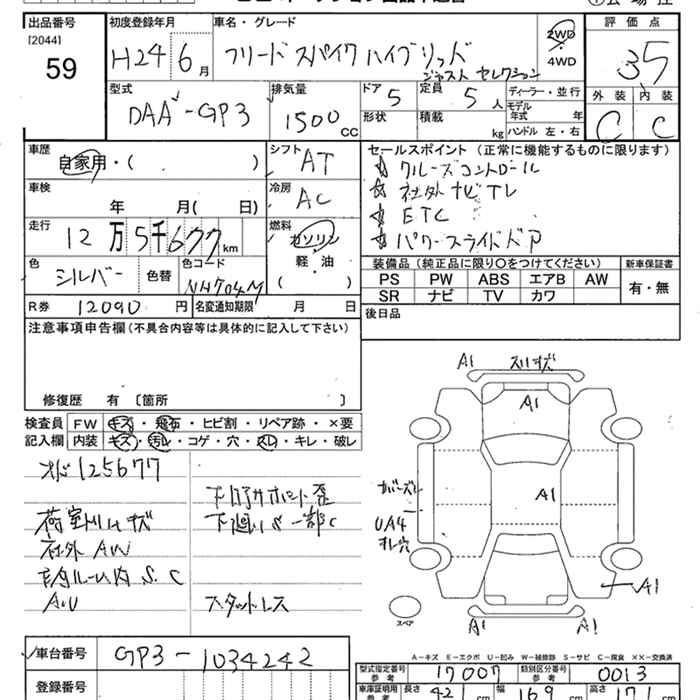 出品番号
[2044]
59
初度登録年月
H24 6月
車名・グレード
フリード スパイク ハイブリッド
ジャスト セレクション
2WD
4WD
評価点
3.5
外装 内装
C C
型式
DAA-GP3
排気量
1500 CC
ドア
5
定員
5人
形状
積載
kg
ディーラー・並行
モデル
年式 年
ハンドル 左・右
車歴
自家用・( )
シフト
AT
車検
年 月( 日)
冷房
AC
走行
12万5千677km
燃料
ガソリン
軽・油
( )
色
シルバー
色替
色コード
NH704M
R券 12090円
名変通知期限 月 日
セールスポイント (正常に機能するものに限ります)
クルーズコントロール
社外ナビTV
ETC
パワースライドドア
装備品(純正品に限り○をつけてください)
新車保証書
PS PW ABS エアB AW
SR ナビ TV カワ
有・無
後日品
注意事項申告欄(不具合内容等は具体的に記入して下さい)
修復歴 有 〔箇所 〕
検査員
記入欄
FW キズ・飛石・ヒビ割・リペア跡・×要
内装 キズ・汚レ・コゲ・穴・スレ・キレ・破レ
125677
荷室トリムキズ
社外AW
S.C
下廻り 一部C
スタットレス
A1 スリキズ
A1
A1
カバーズレ
UA4
A1
A1
A1
スペア
A-キズ E-エクボ U-凹み W-補修跡 S-サビ C-腐食 XX-交換済
車台番号
GP3-1034242
登録番号
型式指定番号
参考
17007
類別区分番号
参考
0013
車庫証明用
参考
長さ 421 cm
幅 169 cm
高さ 171 cm